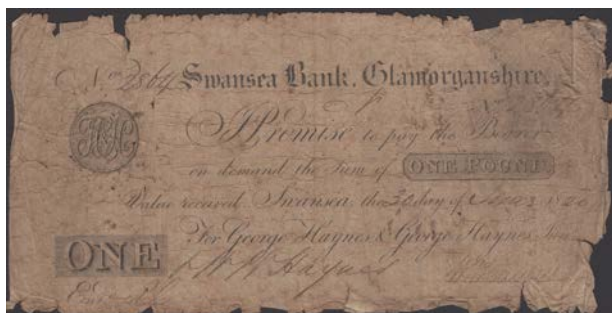 No 2869 Swansea Bank, Glamorganshire.
I Promise to pay the Bearer
on demand the Sum of ONE POUND
Value received Swansea the 30 day of
For George Haynes & George Haynes Junr
ONE
Haynes